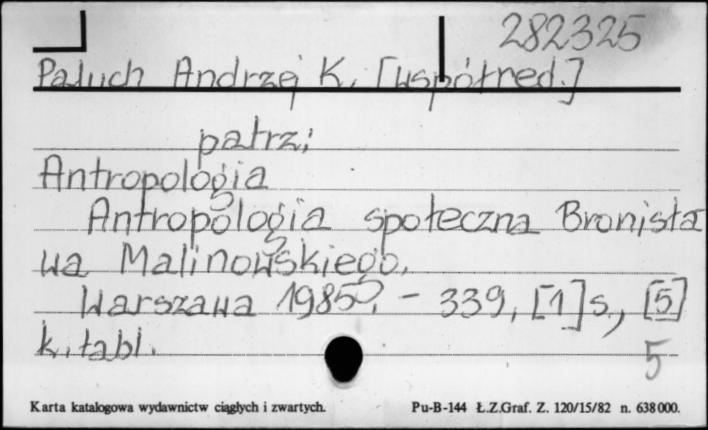 282325
Paluch Andrzej K. [współred.]
patrz:
Antropologia
Antropologia społeczna Bronisła
wa Malinowskiego.
Warszawa 1985. - 339, [1] s., [5]
k. tabl.
5
Karta katalogowa wydawnictw ciągłych i zwartych.
Pu-B-144 Ł.Z.Graf. Z. 120/15/82 n. 638 000.